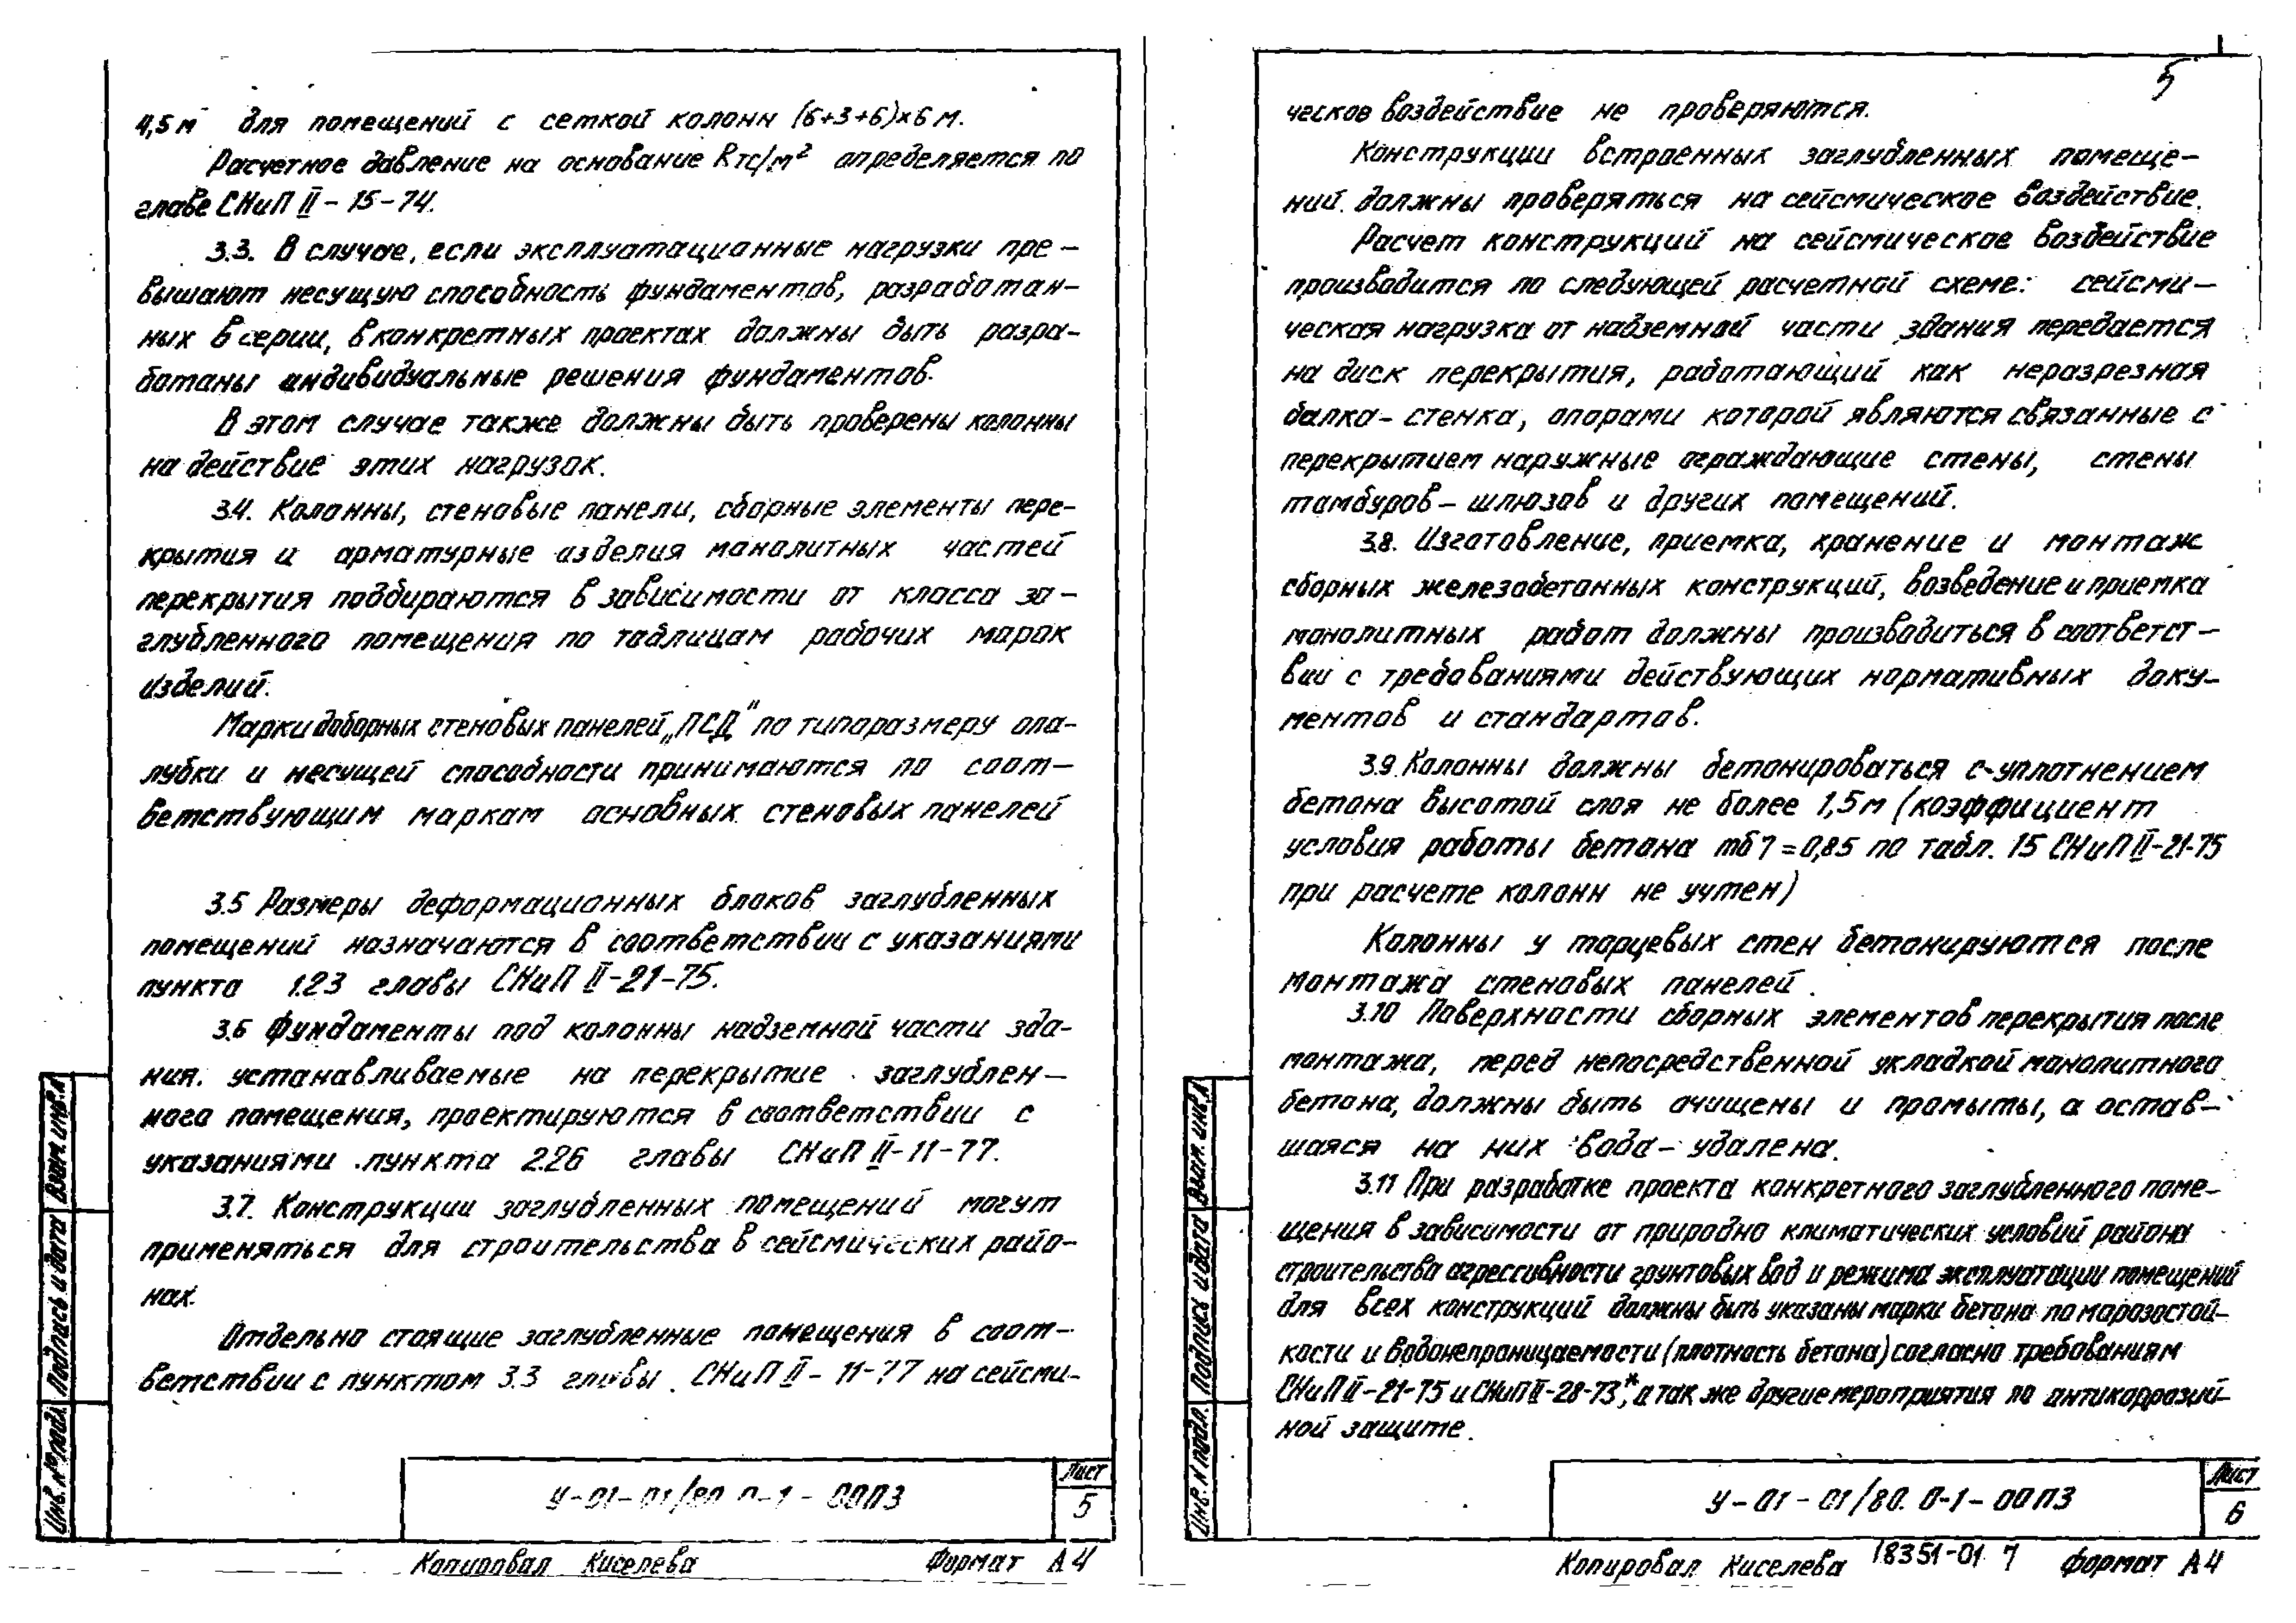 4,5м для помещений с сеткой колонн (6+3+6)×6м.
Расчетное давление на основание Rтс/м² определяется по
главе СНиП II-15-74.
3.3. В случае, если эксплуатационные нагрузки пре-
вышают несущую способность фундаментов, разработан-
ных в серии, в конкретных проектах должны быть разра-
ботаны индивидуальные решения фундаментов.
В этом случае также должны быть проверены колонны
на действие этих нагрузок.
3.4. Колонны, стеновые панели, сборные элементы пере-
крытия и арматурные изделия монолитных частей
перекрытия подбираются в зависимости от класса за-
глубленного помещения по таблицам рабочих марок
изделий.
Марки доборных стеновых панелей „ПСД" по типоразмеру опа-
лубки и несущей способности принимаются по соот-
ветствующим маркам основных стеновых панелей
3.5 Размеры деформационных блоков заглубленных
помещений назначаются в соответствии с указаниями
пункта 1.23 главы СНиП II-21-75.
3.6 Фундаменты под колонны надземной части зда-
ния. устанавливаемые на перекрытие заглублен-
ного помещения, проектируются в соответствии с
указаниями пункта 2.26 главы СНиП II-11-77.
3.7. Конструкции заглубленных помещений могут
применяться для строительства в сейсмических райо-
нах.
Отдельно стоящие заглубленные помещения в соот-
ветствии с пунктом 3.3 главы СНиП II-11-77 на сейсми-
Инв. № подл. Подпись и дата Взам. инв. №
У-01-01/80. 0-1-00ПЗ
Лист
5
Копировал Киселева Формат А4
5
ческое воздействие не проверяются.
Конструкции встроенных заглубленных помеще-
ний должны проверяться на сейсмическое воздействие.
Расчет конструкций на сейсмическое воздействие
производится по следующей расчетной схеме: сейсми-
ческая нагрузка от надземной части здания передается
на диск перекрытия, работающий как неразрезная
балка-стенка, опорами которой являются связанные с
перекрытием наружные ограждающие стены, стены
тамбуров-шлюзов и других помещений.
3.8. Изготовление, приемка, хранение и монтаж
сборных железобетонных конструкций, возведение и приемка
монолитных работ должны производиться в соответст-
вии с требованиями действующих нормативных доку-
ментов и стандартов.
3.9. Колонны должны бетонироваться с уплотнением
бетона высотой слоя не более 1,5м (коэффициент
условия работы бетона mб7=0,85 по табл. 15 СНиП II-21-75
при расчете колонн не учтен)
Колонны у торцевых стен бетонируются после
монтажа стеновых панелей.
3.10 Поверхности сборных элементов перекрытия после
монтажа, перед непосредственной укладкой монолитного
бетона, должны быть очищены и промыты, а остав-
шаяся на них вода-удалена.
3.11 При разработке проекта конкретного заглубленного поме-
щения в зависимости от природно климатических условий района
строительства агрессивности грунтовых вод и режима эксплуатации помещений
для всех конструкций должны быть указаны марки бетона по морозостой-
кости и водонепроницаемости (плотность бетона) согласно требованиям
СНиП II-21-75 и СНиП II-28-73*, а так же другие мероприятия по антикоррозий-
ной защите.
Инв. N подл. Подпись и дата Взам. инв. №
У-01-01/80. 0-1-00ПЗ
Лист
6
Копировал Киселева 18351-01 7 формат А4